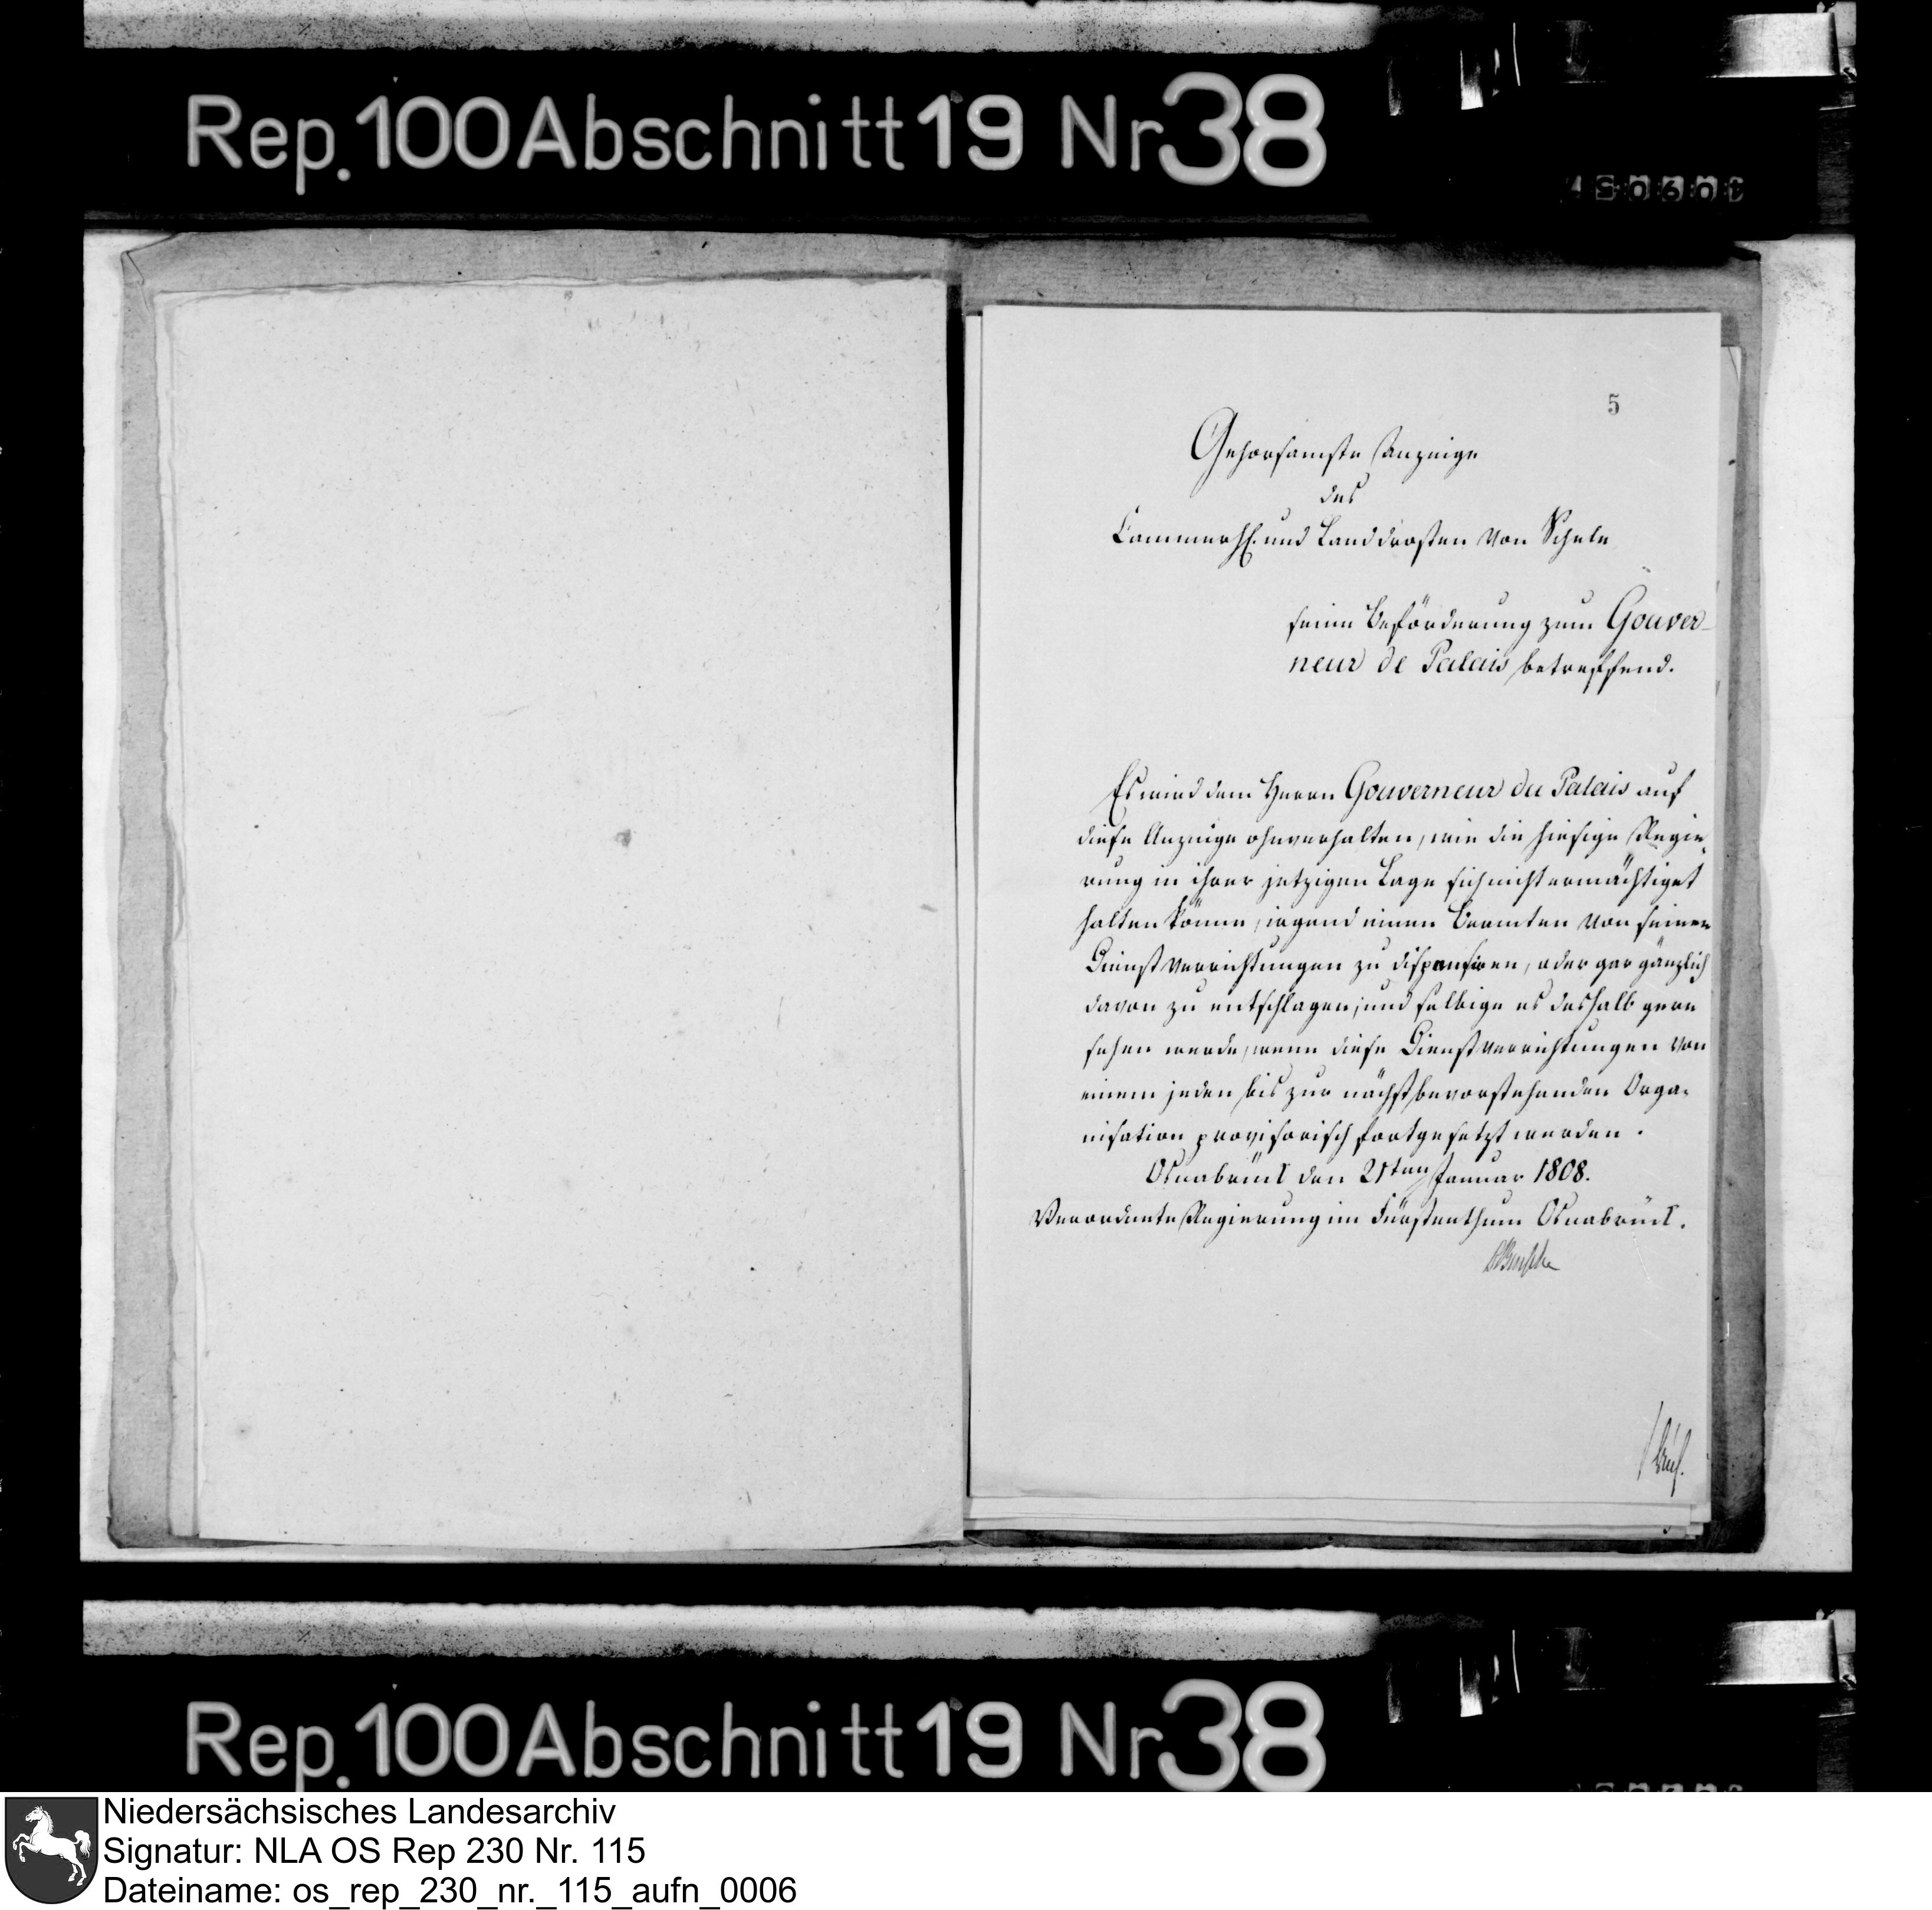 Rep.100 Abschnitt 19 Nr 38
5
Gehorsamste Anzeige
des
Cammerh. und Landdrosten von Schele
seine Beförderung zum Gouver-
neur de Palais betreffend.
Es wird dem Herrn Gouverneur du Palais auf
diese Anzeige ohnverhalten, wie die hiesige Regie-
rung in ihrer jetzigen Lage sich nicht ermächtiget
halten könne, irgend einen Beamten von seinen
Dienstverrichtungen zu dispensiren, oder gar gänzlich
davon zu entschlagen; und selbige es deshalb gern
sehen werde, wenn diese Dienstverrichtungen von
einem jeden bis zur nächstbevorstehenden Orga-
nisation provisorisch fortgesetzt werden.
Osnabrück den 21ten Januar 1808.
Verordnete Regierung im Fürstenthum Osnabrück.
Rep.100 Abschnitt 19 Nr 38
Niedersächsisches Landesarchiv
Signatur: NLA OS Rep 230 Nr. 115
Dateiname: os_rep_230_nr._115_aufn_0006